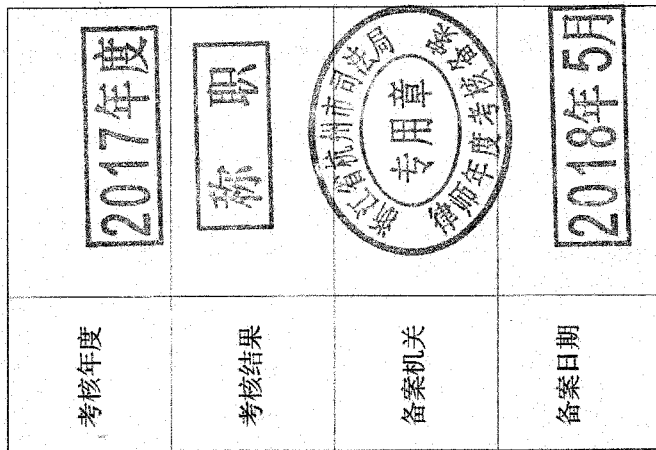 考核年度
2017年度
考核结果
称 职
备案机关
浙江省杭州市司法局
专用章
律师年度考核备案
备案日期
2018年5月